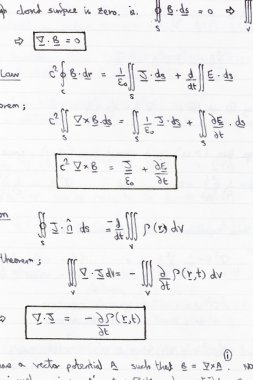 closed surface is zero. is. ∯_S B·ds = 0 ⇒ ∭_V
⇒ ∇·B = 0
Law c² ∮_C B·dr = 1/ε₀ ∬_S J·ds + d/dt ∬_S E·ds
orem; c² ∬_S ∇×B·ds = ∬_S 1/ε₀ J·ds + ∬_S ∂E/∂t·ds
c² ∇×B = J/ε₀ + ∂E/∂t
on ∯_S J·n̂ ds = -d/dt ∭_V ρ(r) dV
theorem; ∭_V ∇·J dV = - ∭_V ∂/∂t ρ(r,t) dV
⇒ ∇·J = -∂ρ(r,t)/∂t
(i)
a vector potential A such that B = ∇×A.